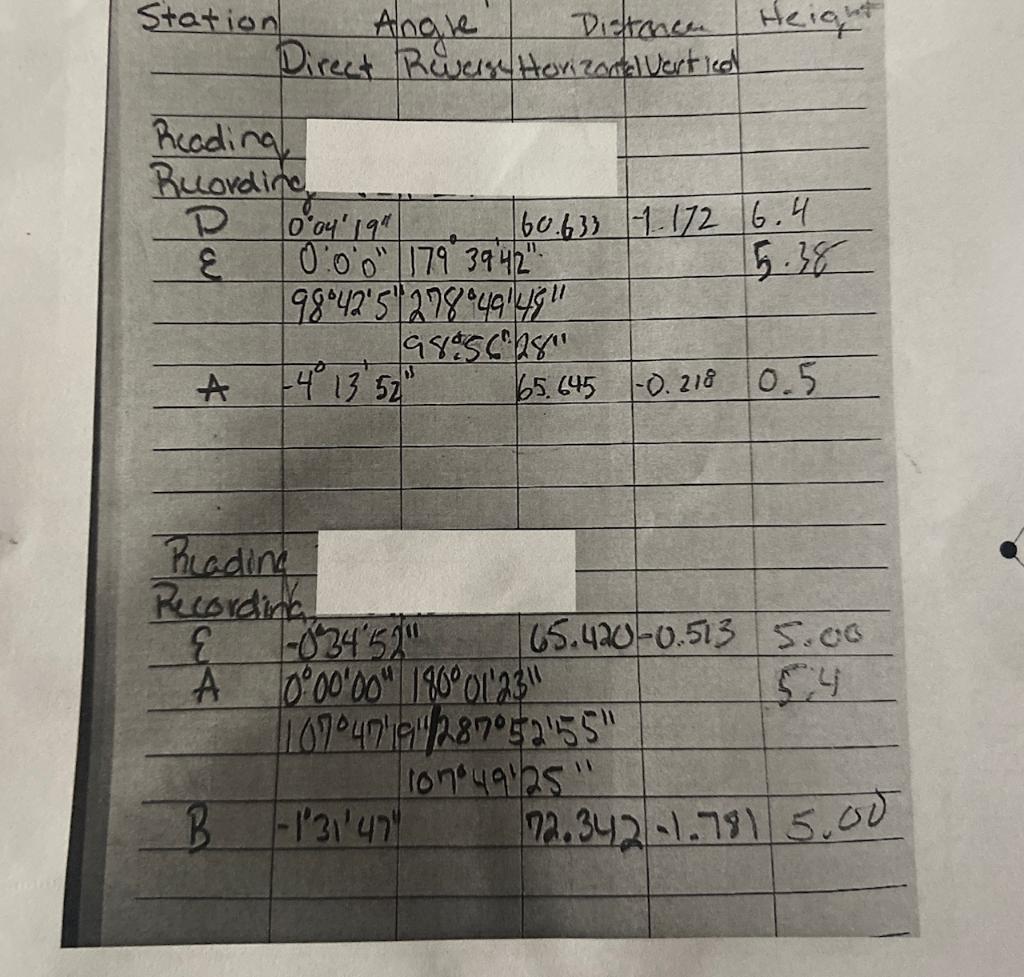 Station Angle Distance Height
Direct Reverse Horizontal Vertical
Reading
Recording
D 0°04'19" 60.633 -1.172 6.4
E 0°0'0" 179°39'42" 5.38
98°42'5" 278°49'48"
98°56'28"
A -4°13'52" 65.645 -0.218 0.5
Reading
Recording
E -0°34'52" 65.420 -0.513 5.00
A 0°00'00" 180°01'23" 5.4
107°47'19" 287°52'55"
107°49'25"
B -1°31'47" 72.342 -1.781 5.00